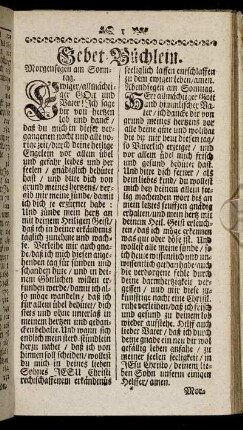 1
Gebet-Büchlein.
Morgensegen am Sonn-
tag.
Ewiger, allmächti-
ger GOtt und
Vater! Ich sage
dir von hertzen
lob und danck,
daß du mich in dieser ver-
gangenen nacht und alle vo-
rige zeit, durch deine heilige
Engelein vor allem übel
und gefahr leibes und der
seelen, gnädiglich behütet
hast, und bitte dich von
grund meines hertzens, ver-
gib mir meine sünde, damit
ich dich je erzürnet habe:
Und zünde mein hertz an
mit deinem Heiligen Geist,
daß ich in deiner erkäntnis
täglich zunehme und wach-
se. Verleihe mir auch gna-
de, daß ich mich diesen an-
gehenden tag für sünden und
schanden hüte, und in dei-
nem Göttlichen willen er-
funden werde,
Und wann sich
endlich mein sterb-stündlein
her nahet, daß ich von
hinnen soll scheiden, wollest
du mich in deines lieben
Sohnes JESU Christi
rechtschaffenen erkäntnis
seeliglich lassen entschlaffen
zu dem ewigen leben, amen.
Abendsegen am Sonntag.
HErr allmächtiger Gott
und himmlischer Va-
ter, ich dancke dir von
grund meines hertzens vor
alle deine güte und wolthat
die du mir heut diesen tag,
so Väterlich erzeiget, und
vor allem bös mich frisch
und gesund behütet hast.
Und bitte dich ferner, als
dein liebes kind, du wollest
mich bey deinem allein hei-
lig machenden
erhalten, und mein hertz mit
deinem Heil. Geist erleuch-
ten, daß ich möge erkennen
was gut oder böse ist. Und
wollest alle meine sünde, so
ich heut wissentlich und un-
wissentlich
die verborgene fehle durch
deine barmhertzigkeit ver-
gessen, und mir für die zu-
künftige nacht eine Christl.
ruhe verleihen, daß ich frisch
und gesund zu deinem lob
wieder aufstehe. Hilff auch
lieber Vater, daß ich durch
deine gnade ein neu dir wol
gefällig leben anfahe, zu
meiner seelen seeligkeit, in
JEsu Christo, deinem lie-
ben Sohn unserm einigen
Helffer, amen.
Mor-